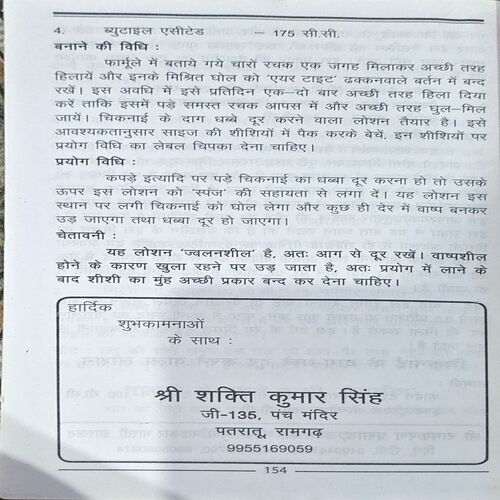 4. ब्युटाइल एसीटेड – 175 सी.सी.
बनाने की विधि :
फार्मूले में बताये गये चारों रचक एक जगह मिलाकर अच्छी तरह
हिलायें और इनके मिश्रित घोल को 'एयर टाइट' ढक्कनवाले बर्तन में बन्द
रखें। इस अवधि में इसे प्रतिदिन एक–दो बार अच्छी तरह हिला दिया
करें ताकि इसमें पड़े समस्त रचक आपस में और अच्छी तरह घुल–मिल
जायें। चिकनाई के दाग धब्बे दूर करने वाला लोशन तैयार है। इसे
आवश्यकतानुसार साइज की शीशियों में पैक करके बेचें, इन शीशियों पर
प्रयोग विधि का लेबल चिपका देना चाहिए।
प्रयोग विधि :
कपड़े इत्यादि पर पड़े चिकनाई का धब्बा दूर करना हो तो उसके
ऊपर इस लोशन को 'स्पंज' की सहायता से लगा दें। यह लोशन इस
स्थान पर लगी चिकनाई को घोल लेगा और कुछ ही देर में वाष्प बनकर
उड़ जाएगा तथा धब्बा दूर हो जाएगा।
चेतावनी :
यह लोशन 'ज्वलनशील' है, अतः आग से दूर रखें। वाष्पशील
होने के कारण खुला रहने पर उड़ जाता है, अतः प्रयोग में लाने के
बाद शीशी का मुंह अच्छी प्रकार बन्द कर देना चाहिए।
हार्दिक
शुभकामनाओं
के साथ :
श्री शक्ति कुमार सिंह
जी-135, पंच मंदिर
पतरातू, रामगढ़
9955169059
154